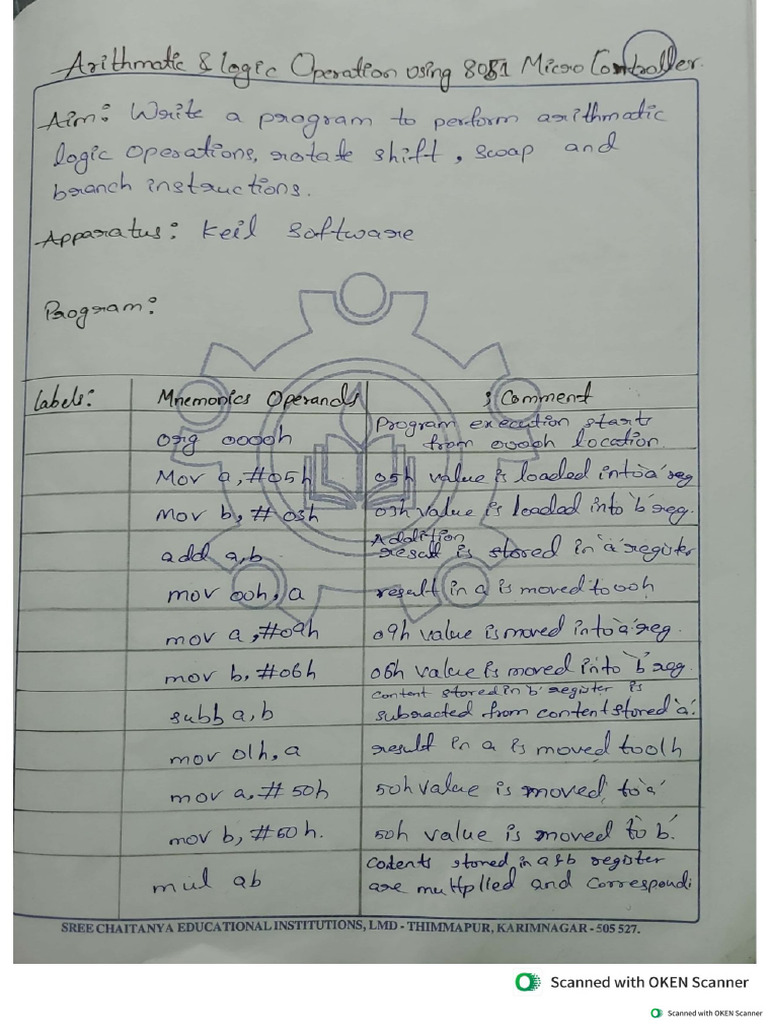 Arithmatic & logic Operation using 8051 Micro Controller.
Aim: Write a program to perform arithmatic
logic operations, rotate shift, swap and
branch instructions.
Apparatus: Keil Software
Program:
Labels: Mnemonics Operands ; Comment
org 0000h Program execution start
from 0000h location
Mov a,#05h 05h value is loaded into 'a' reg
Mov b,#03h 03h value is loaded into 'b' reg.
add a,b Addition
result is stored in 'a' register
mov 00h,a result in a is moved to 00h
mov a,#09h 09h value is moved into 'a' reg.
mov b,#06h 06h value is moved into 'b' reg.
subb a,b content stored in 'b' register is
subracted from content stored 'a'.
mov 01h,a result in a is moved to 01h
mov a,#50h 50h value is moved to 'a'
mov b,#50h. 50h value is moved to b'.
mul ab Contents stored in a & b register
are multplied and correspondi
SREE CHAITANYA EDUCATIONAL INSTITUTIONS, LMD - THIMMAPUR, KARIMNAGAR - 505 527.
Scanned with OKEN Scanner
Scanned with OKEN Scanner